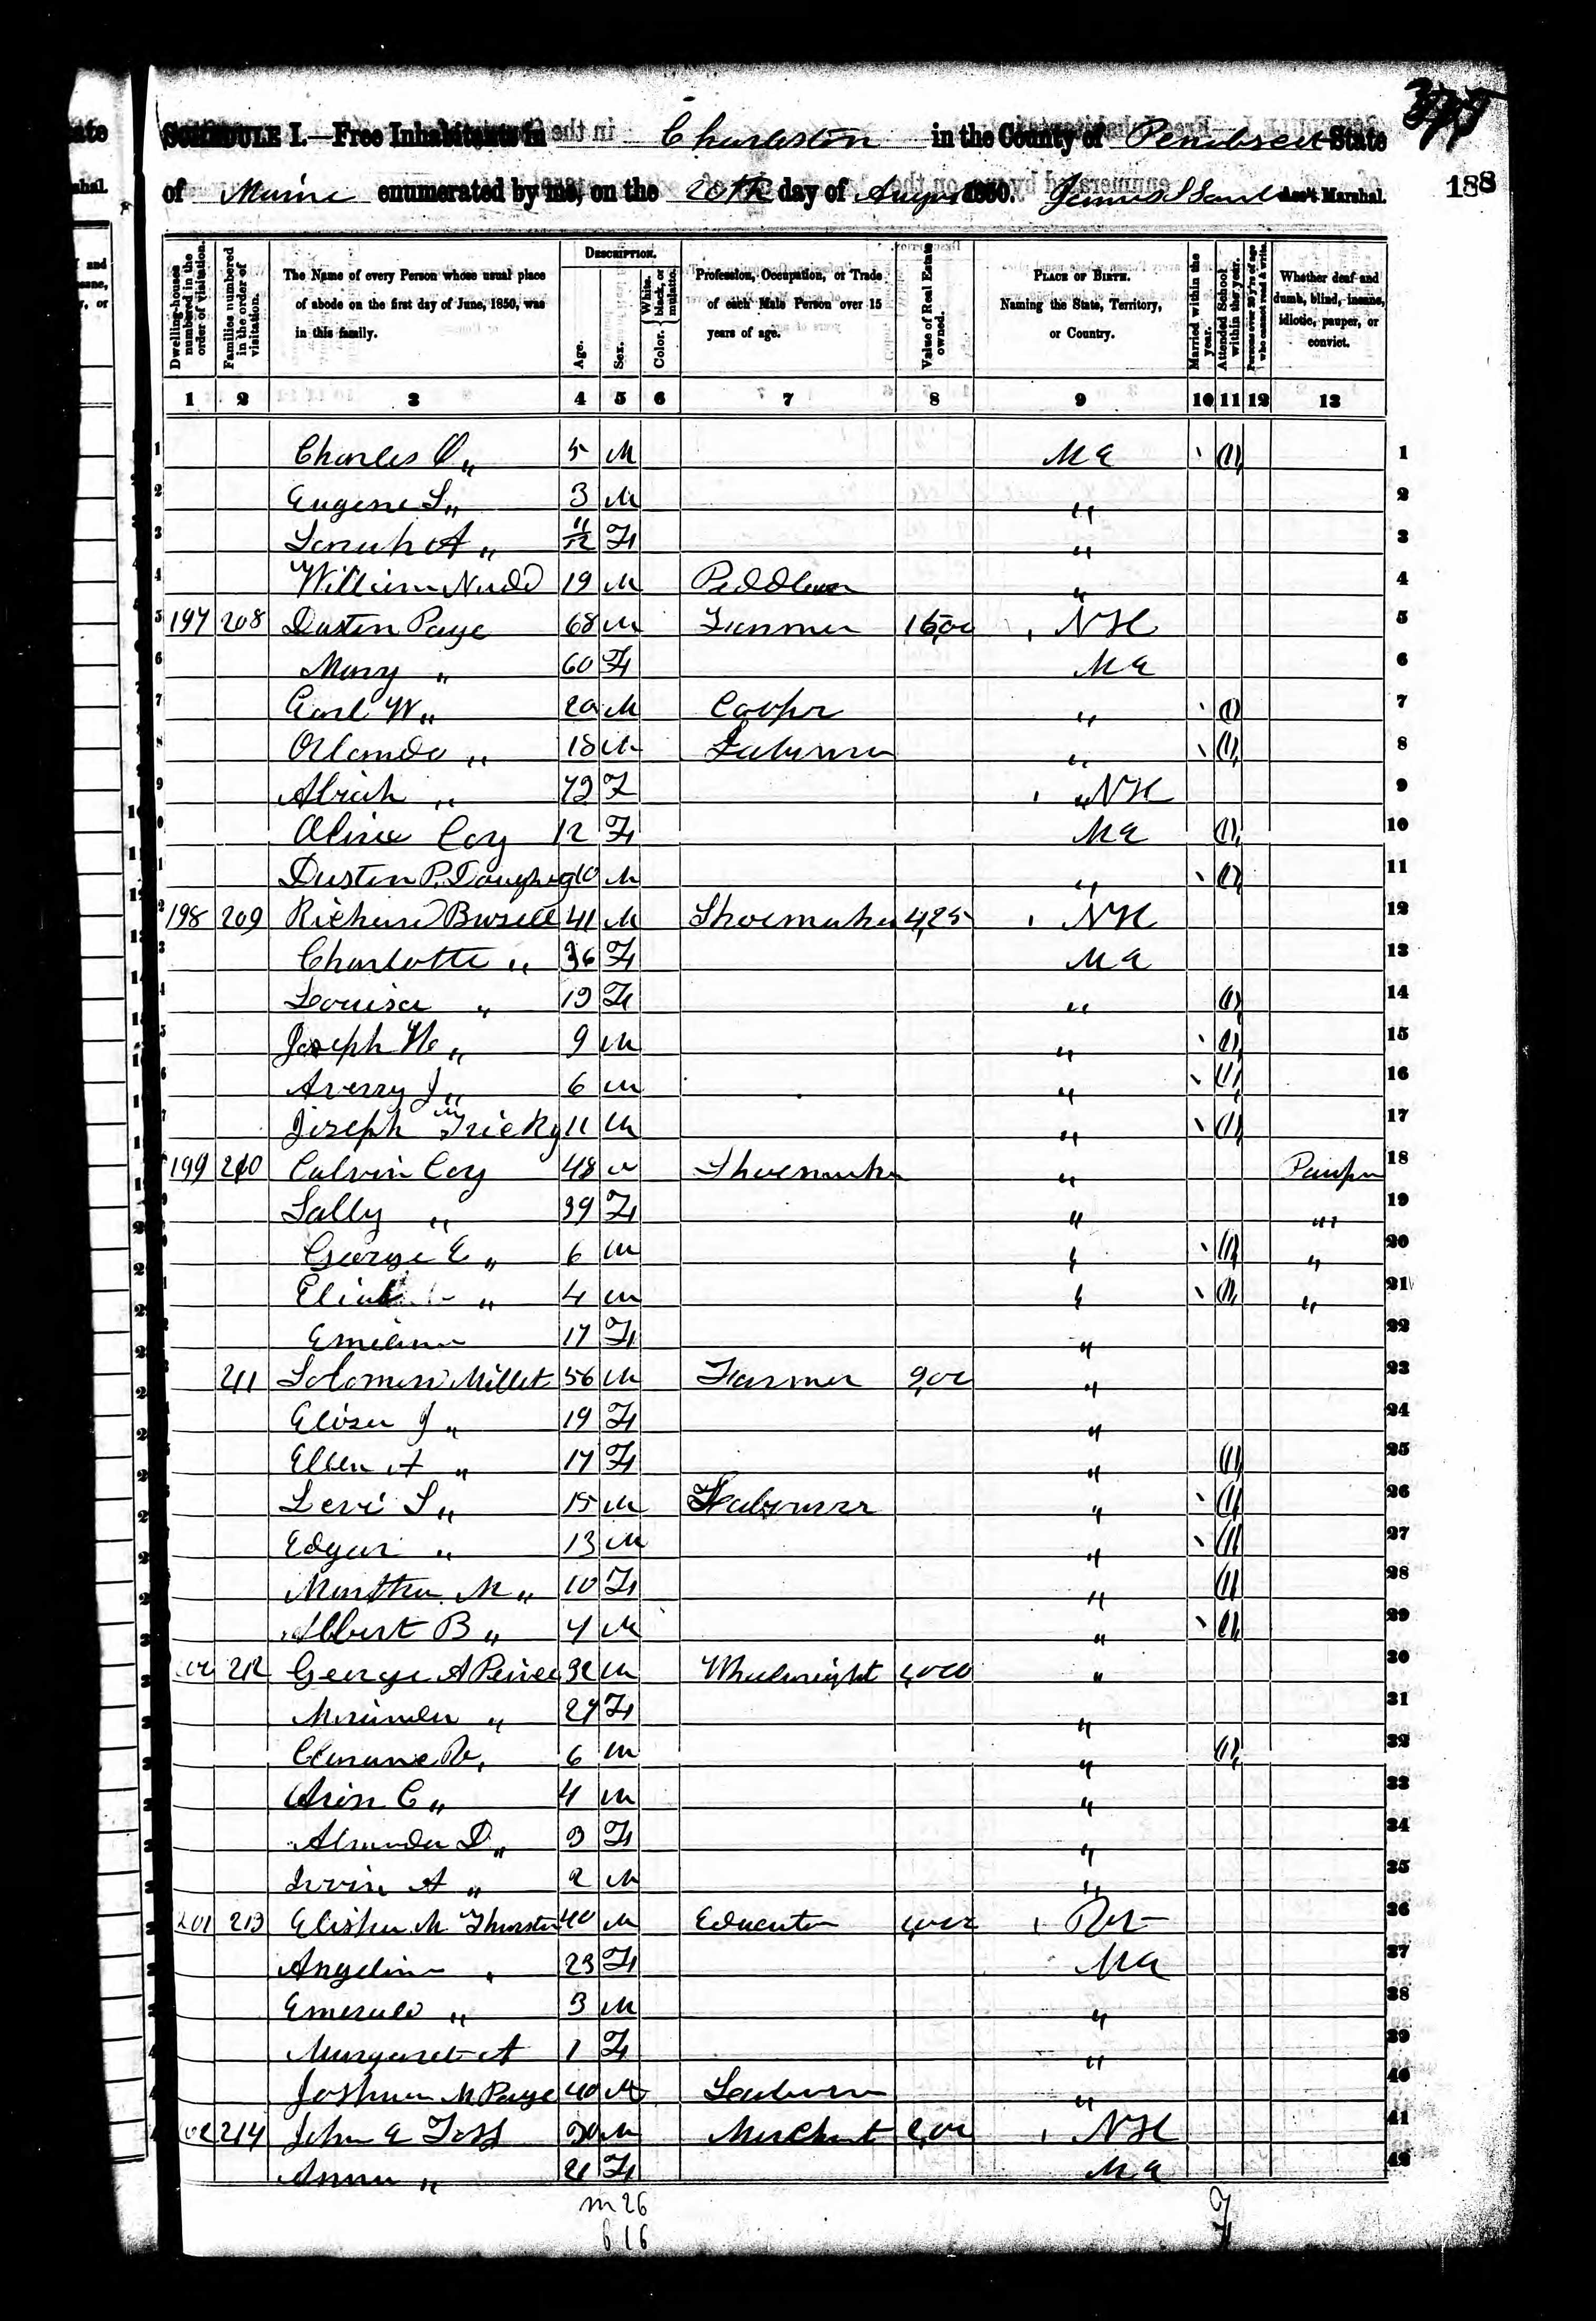 375
SCHEDULE I.—Free Inhabitants in Charleston in the County of Penobscot State
of Maine enumerated by me, on the 20th day of August 1850. Ass't Marshal. 188
Dwelling-houses numbered in the order of visitation.
Families numbered in the order of visitation.
The Name of every Person whose usual place of abode on the first day of June, 1850, was in this family.
DESCRIPTION.
Age.
Sex.
Color. White, black, or mulatto.
Profession, Occupation, or Trade of each Male Person over 15 years of age.
Value of Real Estate owned.
PLACE OF BIRTH. Naming the State, Territory, or Country.
Married within the year.
Attended School within the year.
Persons over 20 y'rs of age who cannot read & write.
Whether deaf and dumb, blind, insane, idiotic, pauper, or convict.
1 2 3 4 5 6 7 8 9 10 11 12 13
1 Charles O " 5 M Me 1 1
2 Eugene S " 3 M " 2
3 Sarah A " 11/12 F " 3
4 William Nudd 19 M Peddler " 4
5 197 208 Dustin Page 68 M Farmer 1500 NH 5
6 Mary " 60 F Me 6
7 Carl W " 20 M Cooper " 1 7
8 Orlando " 18 M Labourer " 1 8
9 Abiah " 72 F " NH 9
10 Coy 12 F Me 1 10
11 Dustin P. 10 M " 1 11
12 198 209 Richard Buswell 41 M Shoemaker 425 NH 12
13 Charlotte " 36 F Me 13
14 Louisa " 13 F " 1 14
15 Joseph W " 9 M " 1 15
16 Averry J " 6 M " 1 16
17 Joseph Tricky 11 M " 1 17
18 199 210 Calvin Coy 48 M Shoemaker " Pauper 18
19 Sally " 39 F " " 19
20 George E " 6 M " 1 " 20
21 " 4 M " 1 " 21
22 17 F " 22
23 211 Solomon Millet 56 M Farmer 900 " 23
24 Eliza J " 19 F " 24
25 Ellen A " 17 F " 1 25
26 Levi S " 15 M Labourer " 1 26
27 Edgar " 13 M " 1 27
28 Martha M " 10 F " 1 28
29 Albert B " 4 M " 1 29
30 212 George A Peirce 32 M Wheelwright 1,000 " 30
31 " 27 F " 31
32 6 M " 1 32
33 C " 4 M " 33
34 D " 3 F " 34
35 Irvin A " 2 M " 35
36 201 213 Elisha M Thurston 40 M Educator 36
37 Angeline " 23 F Me 37
38 " 3 M " 38
39 Margaret A 1 F " 39
40 Joshua M Page 40 M Labourer " 40
41 02 214 John E Foss 30 M Merchant 200 NH 41
42 Anna " 21 F Me 42
m 26
f 16